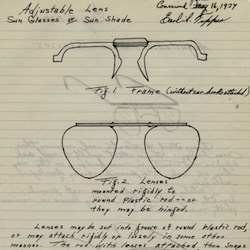 Adjustable Lens
Sun Glasses or Sun Shade
Conceived May 16, 1937
Earl S. Tupper
Fig. 1 Frame (without ear hooks attached)
Fig. 2. Lenses
mounted rigidly to
round plastic rod -- or
they may be hinged.
Lenses may be set into groove of round plastic rod,
or may attach rigidly or loosely in some other
manner. The rod with lenses attached then snaps